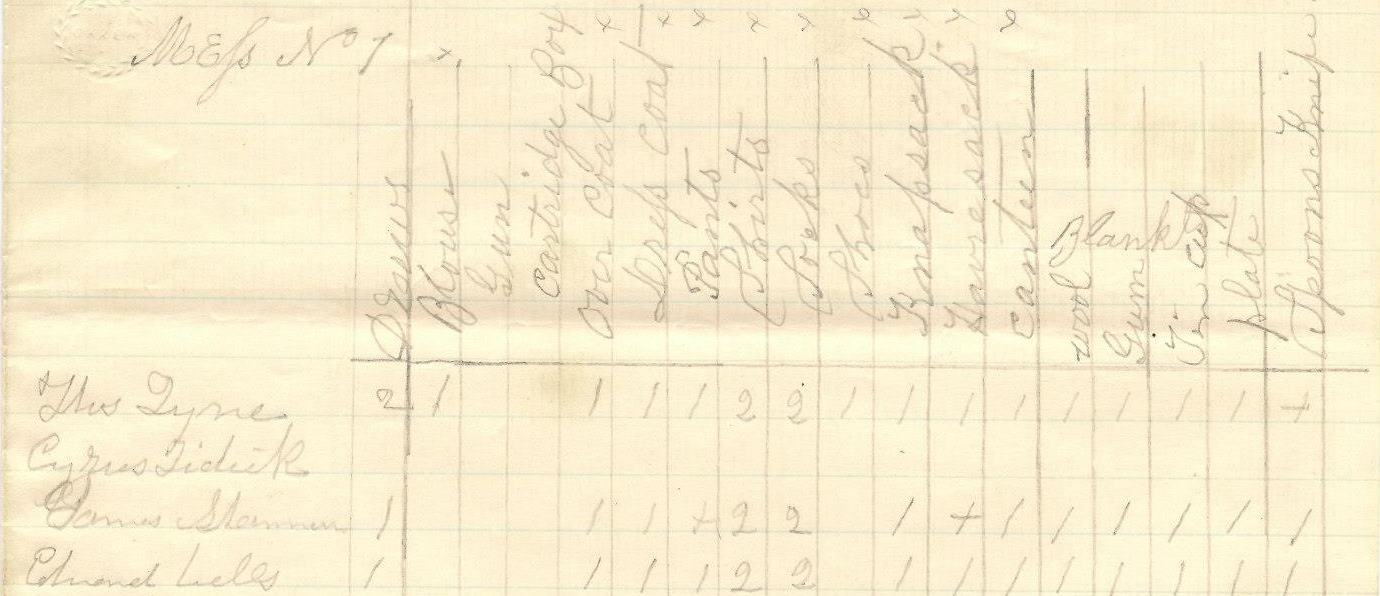 Mess No 1
x x x x x x x x x x
Drawrs Blouse Gun Cartridge Box Over Coat Dress Coat Pants Shirts Socks Shoes Knapsack Haversack Canteen Wool Blank Gum Tin cup plate Spoons Knife
Thos Tyrne 2 1 1 1 1 2 2 1 1 1 1 1 1 1 1 +
Cyrus Tidick
James 1 1 1 + 2 2 1 + 1 1 1 1 1 1
Edward 1 1 1 1 2 2 1 1 1 1 1 1 1 1